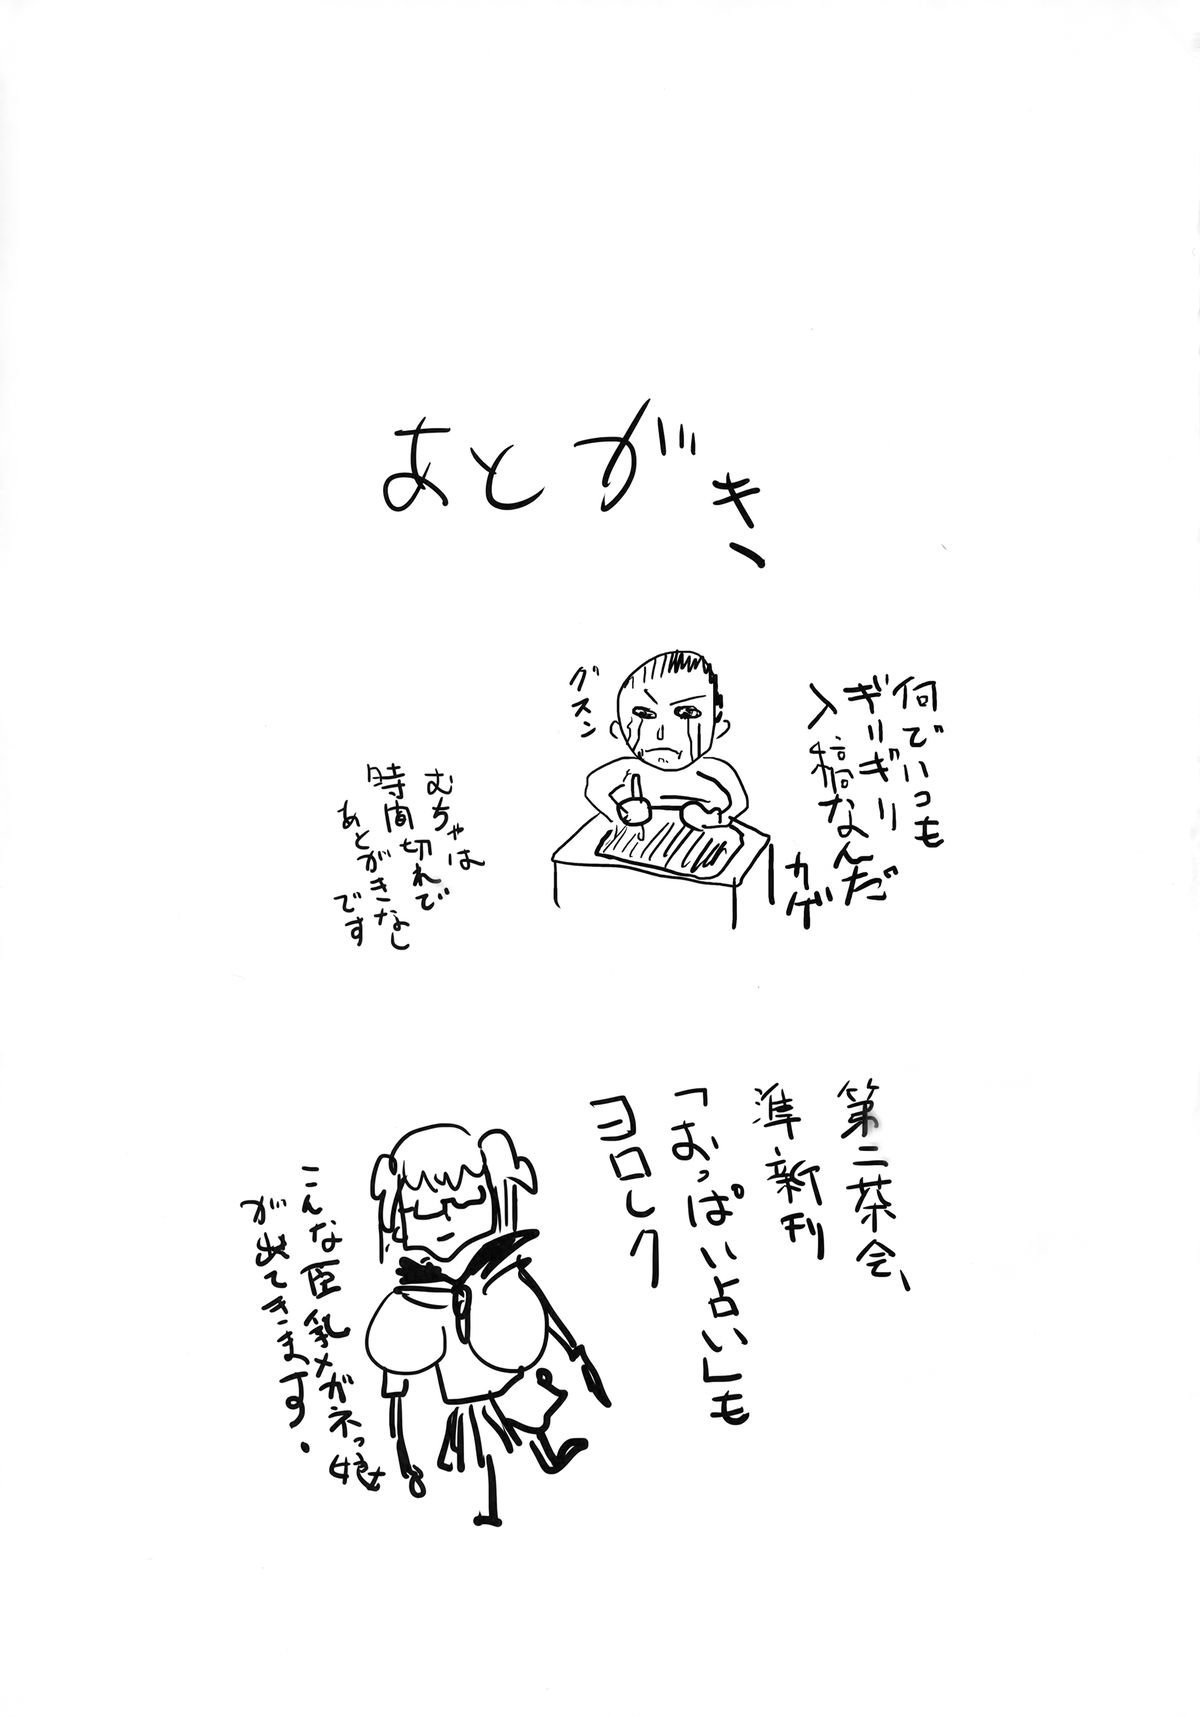 あとがき、
何でいつも
ギリギリ
入稿なんだ
カゲ
グスン
むちゃは
時間切れで
あとがきなし
です
第二茶会、
準新刊
「おっぱい占い」も
ヨロレク
こんな臣乳メガネっ娘
が出てきます.